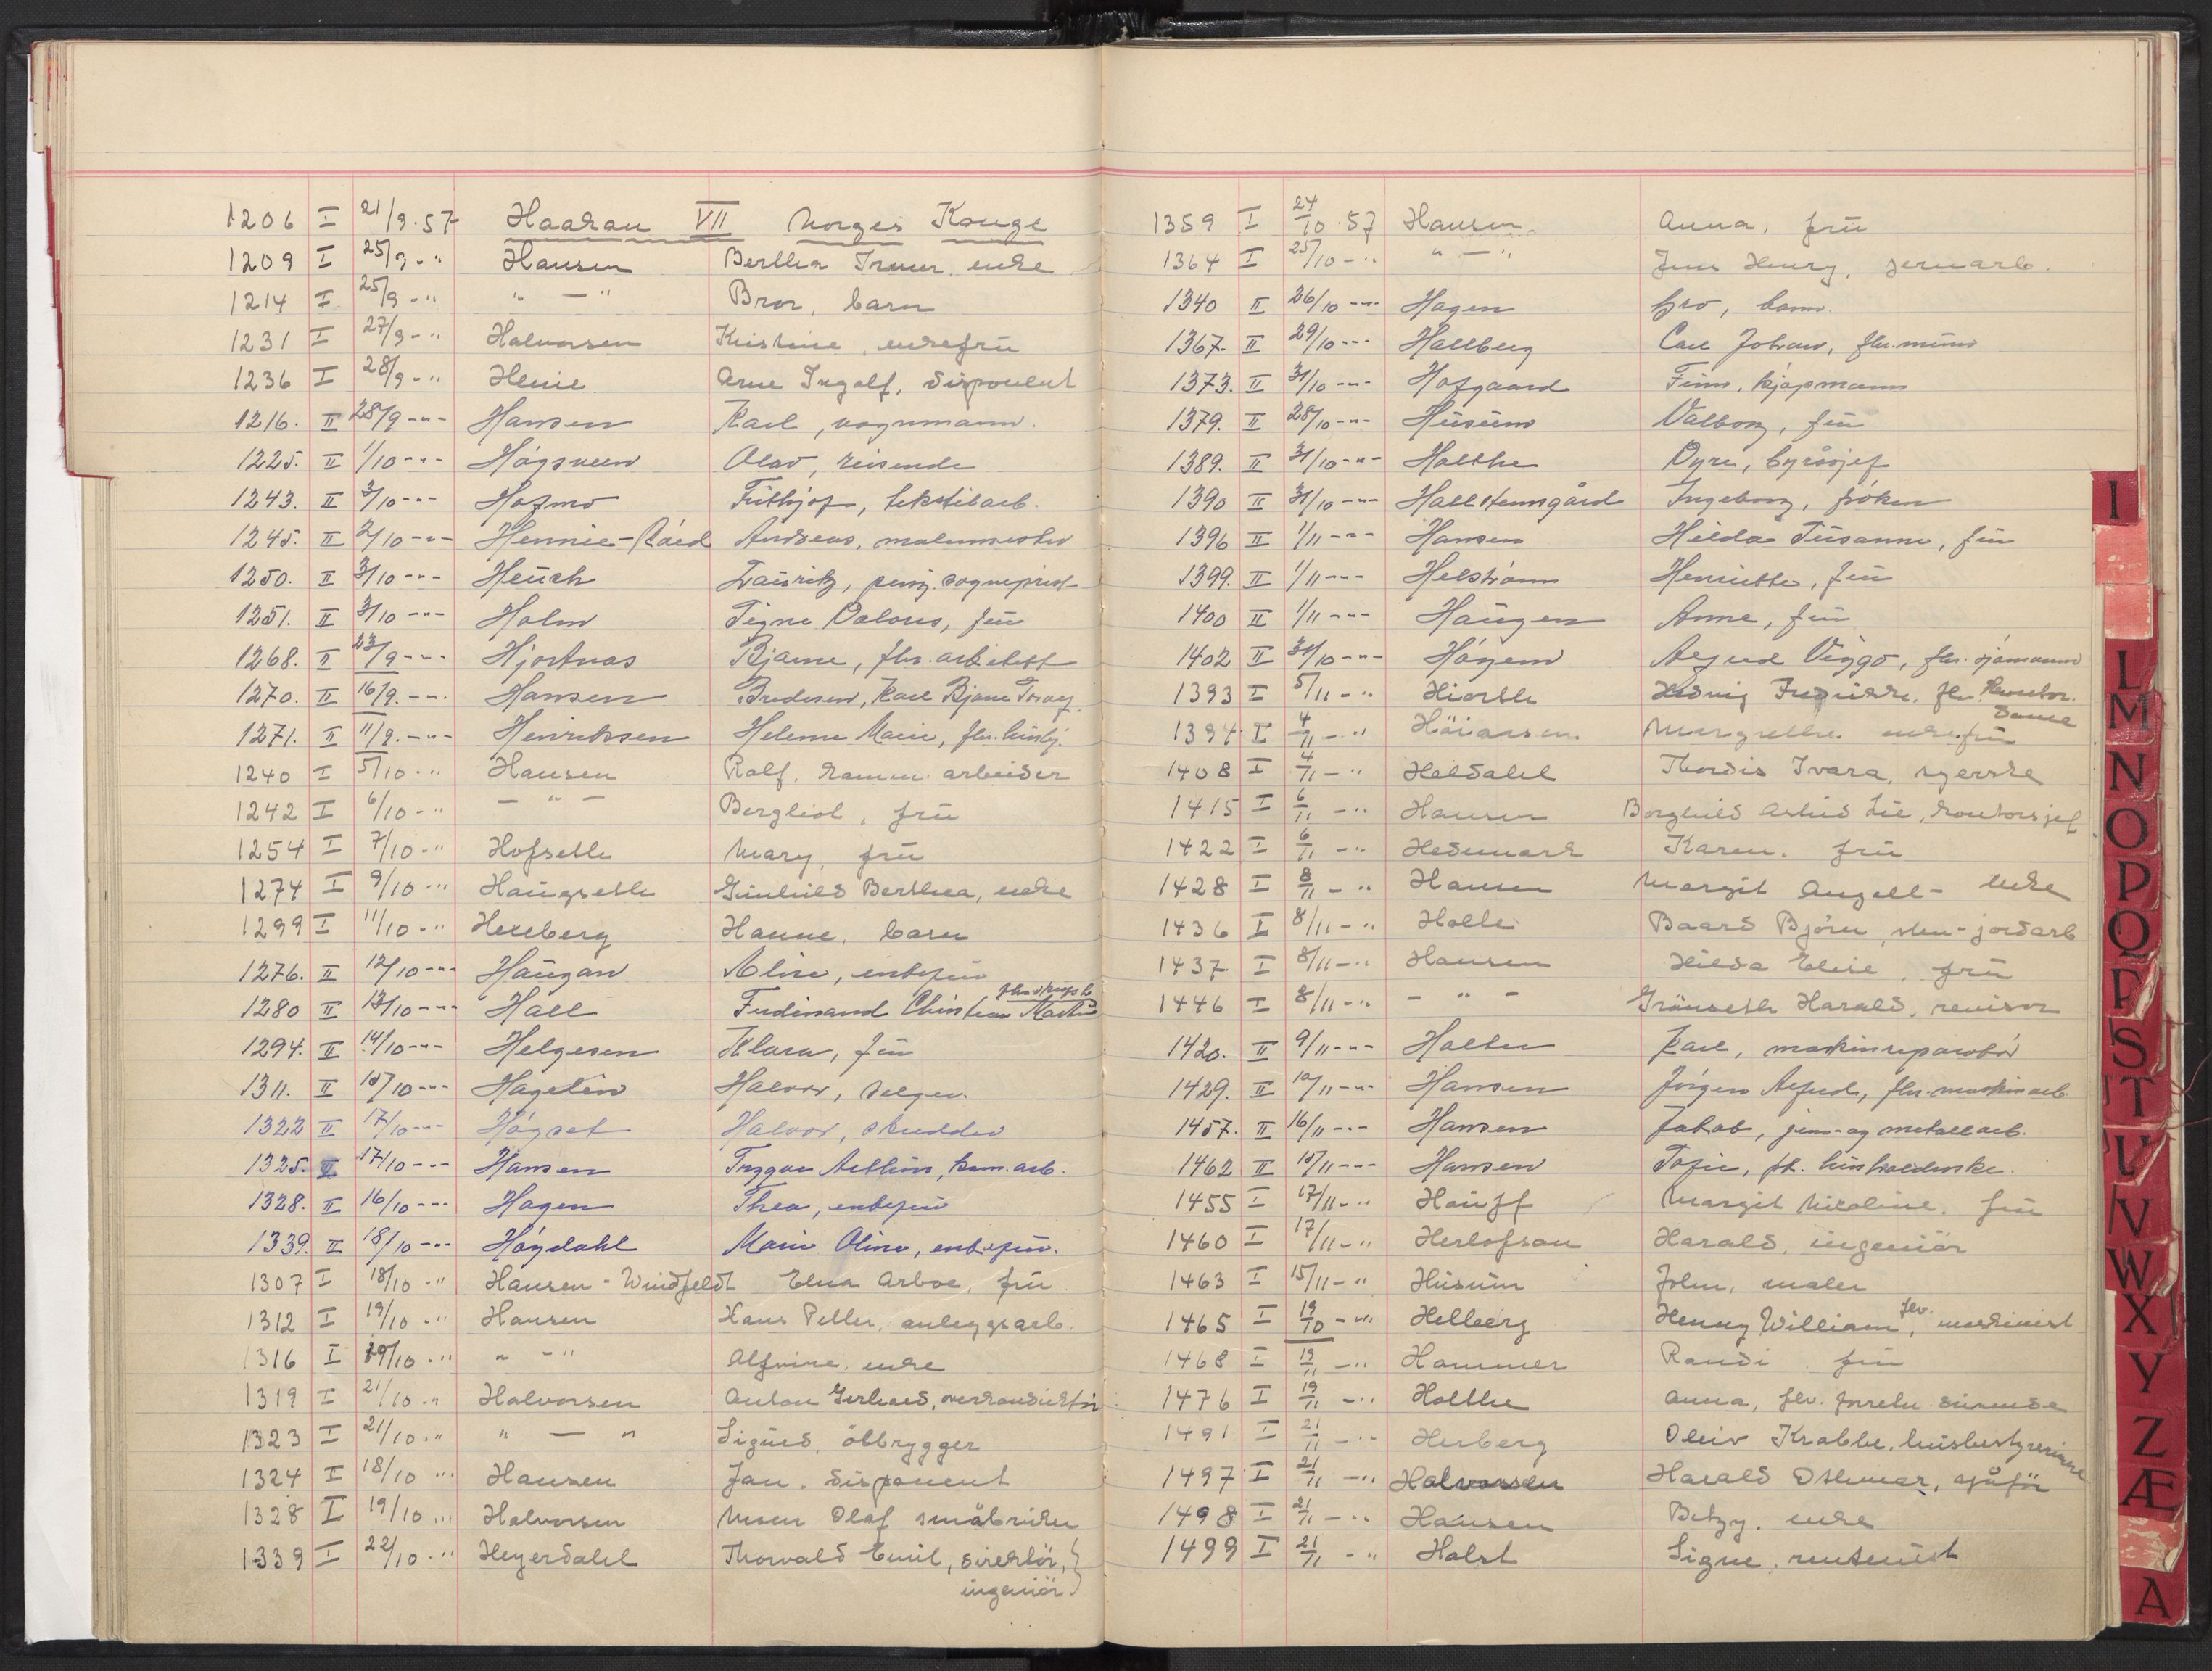 1206 I 21/9.57 Haakon VII Norges Konge
1209 I 25/9 - " Hansen Berthea Irmer, enke
1214 I 25/9 - " " — " Bror, barn
1231 I 27/9 - " Halvorsen Kristine, enkefru
1236 I 28/9 - " Henie Arne Ingolf, disponent
1216. II 28/9 - " - Hansen Karl, vognmann.
1225. II 1/10 - " - Høgsveen Olav, reisende
1243. II 3/10 - " - Hofmo Frithjof, tekstilarb.
1245. II 2/10 - " - Hennie-Råed Andreas, malermester
1250. II 3/10 - " - Heuch Lauritz, pensj. sogneprest
1251. II 3/10 - " - Holm Signe Dolores, fru
1268. II 23/9 - " - Hjortnæs Bjarne, fhv. arkitekt
1270. II 16/9. - " - Hansen Bredesen, Karl Bjarne
1271. II 11/9. - " - Henriksen Helene Marie, fhv. husbj.
1240 I 5/10 - " Hansen Rolf, komm. arbeider
1242 I 6/10 - " — " — Bergliot, fru
1254 I 7/10 - " Hofseth Mary, fru
1274 I 9/10 - " Haugseth Gunhild Berthea, enke
1299 I 11/10 - " Hexeberg Hanne, barn
1276. II 12/10 - " - Haugan Aline, enkefru
1280 II 13/10 - " - Hall Ferdinand Christian Martin
1294. II 14/10 - " - Helgesen Klara, fru
1311. II 15/10 - " - Hagelin Halvor, selger.
1322 II 17/10 - " - Høgset Halvor, skredder
1325. II 17/10 - " - Hansen Trygve Arthur, kom. arb.
1328. II 16/10 - " - Hagen Thea, enkefru
1339. II 18/10 - " - Høydahl Marie Oline, enkefru.
1307 I 18/10 - " Hansen - Windfeldt Elna Arboe, fru
1312 I 19/10 - " Hansen Hans Petter, anleggsarb.
1316 I 19/10 - " " - " Alfine, enke
1319 I 21/10 - " Halvorsen Anton Gerhard, overkonduktör
1323 I 21/10 - " " — " Sigurd, ölbrygger
1324 I 18/10 - " Hansen Jan, disponent
1328 I 19/10 - " Halvorsen Olaf småbruker
1339 I 22/10 - " Heyerdahl Thorvald Emil, direktör,
ingeniör
1359 I 24/10.57 Hansen Anna, fru
1364 I 25/10 - " " — " Jens Henry, jernarb.
1340 II 26/10 - " - Hagen Gro, barn.
1367. II 29/10 - " - Hallberg Carl Johan, fhv. murer
1373. II 31/10 - " - Hofgaard Finn, kjøpmann
1379. II 28/10 - " - Husum Valborg, fru
1389. II 31/10 - " - Holthe Dyre, byråsjef
1390 II 31/10 - " - Hallstensgård Ingeborg, frøken
1396 II 1/11 - " - Hansen Hilda Susanne, fru
1399. II 1/11 - " - Helstrøm Henriette, fru
1400 II 1/11 - " - Haugen Anne, fru
1402 II 31/10 - " - Høyem Alfred Viggo, fhv. sjømann
1393 I 5/11 - " Hiorth Hedvig Fredrikke, fhv. kontor-
dame
1394 I 4/11 - " Höiaasen Margrethe enkefru
1408 I 4/11 - " Heldahl Thordis Ivara, syerske
1415 I 6/11 - " Hansen Borghild Astrid Lie, kontorsjef
1422 I 6/11 - " Hedemark Karen, fru
1428 I 8/11 - " Hansen Margit Angell - enke
1436 I 8/11 - " Holte Baard Björn, sten-jordarb
1437 I 8/11 - " Hansen Hilda Elise, fru
1446 I 8/11 - " - " - Grönseth Harald, revisor
1420. II 9/11 - " - Holter Karl, maskinreparatør
1429. II 10/11 - " - Hansen Jörgen Alfred, fhv. maskinarb.
1457. II 16/11 - " - Hansen Jakob, jern- og metallarb.
1462 II 15/11 - " - Hansen Sofie, fh. husholderske.
1455 I 17/11 - " Hauff Margit Nicoline, fru
1460 I 17/11 - " Herlofsen Harald, ingeniör
1463 I 15/11 - " Husum John, maler
1465 I 19/10 - " Hellberg Henny William, fhv. maskinist
1468 I 19/11 - " Hammer Randi, fru
1476 I 19/11 - " Holthe Anna, fhv. forretn. drivende
1491 I 21/11 - " Herberg Oleiv Krabbe, husbestyrerinne
1497 I 21/11 - " Halvorsen Harald Othmar, sjåför
1498 I 21/11 - " Hansen Betzy, enke
1499 I 21/11 - " Holst Signe, rentenist
I
L
M
N
O
P
Q
R
S
T
U
V
W
X
Y
Z
Æ
A